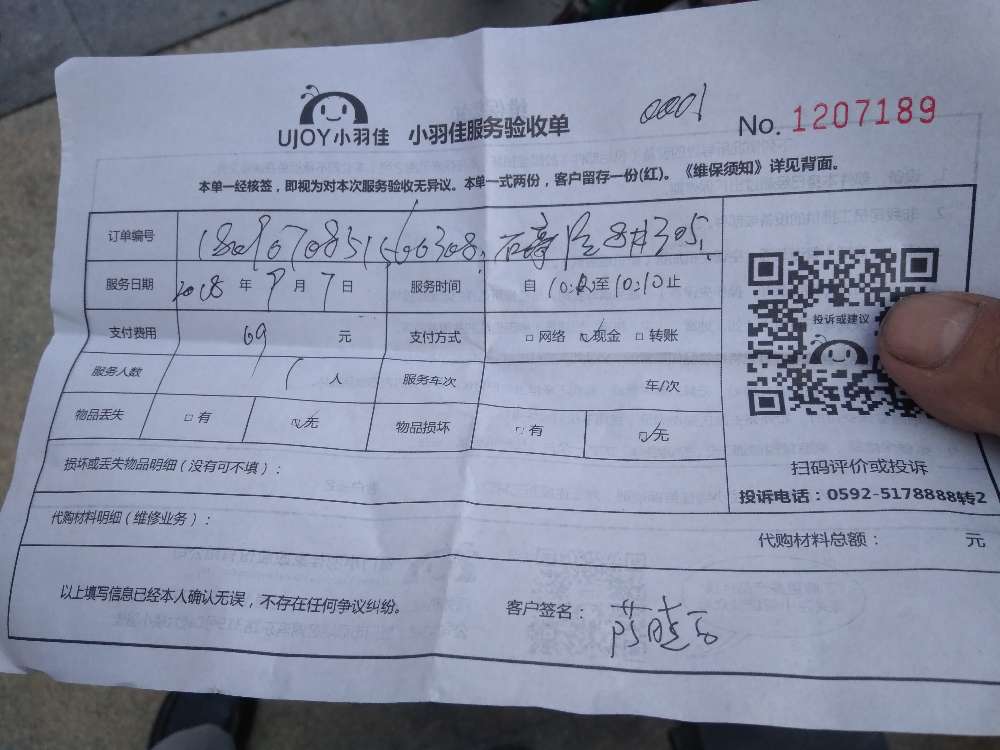 UJOY小羽佳 小羽佳服务验收单 0001 No. 1207189
本单一经核签，即视为对本次服务验收无异议。本单一式两份，客户留存一份(红)。《维保须知》详见背面。
订单编号
服务日期 2018 年 9 月 7 日 服务时间 自 至 10:10 止
支付费用 69 元 支付方式 □ 网络 ☑ 现金 □ 转账
服务人数 1 人 服务车次 车/次
物品丢失 □ 有 ☑ 无 物品损坏 □ 有 ☑ 无
投诉或建议
扫码评价或投诉
投诉电话：0592-5178888转2
损坏或丢失物品明细（没有可不填）：
代购材料明细（维修业务）：
代购材料总额： 元
以上填写信息已经本人确认无误，不存在任何争议纠纷。
客户签名：